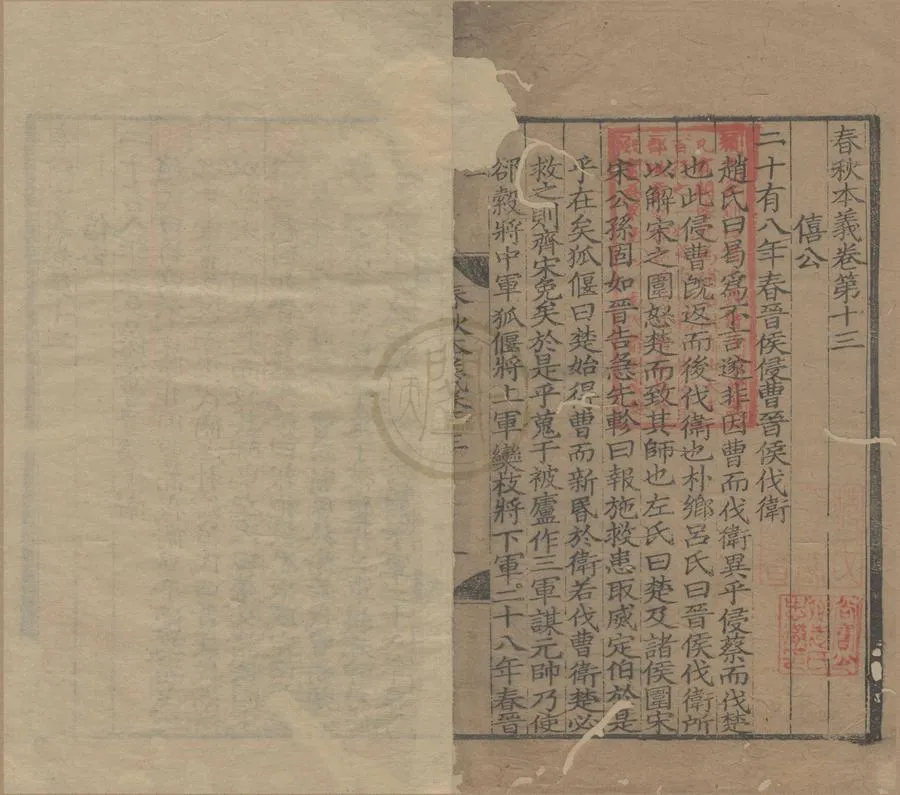 春秋本義卷第十三
僖公
二十有八年春晉侯侵曹晉侯伐衛
趙氏曰曷爲不言遂非因曹而伐衛異乎侵蔡而伐楚
也此侵曹旣返而後伐衛也朴鄉呂氏曰晉侯伐衛所
以解宋之圍怒楚而致其師也左氏曰楚及諸侯圍宋
宋公孫固如晉告急先軫曰報施救患取威定伯於是
乎在矣狐偃曰楚始得曹而新昏於衛若伐曹衛楚必
救之則齊宋免矣於是乎蒐于被廬作三軍謀元帥乃使
郤縠將中軍狐偃將上軍欒枝將下軍二十八年春晉